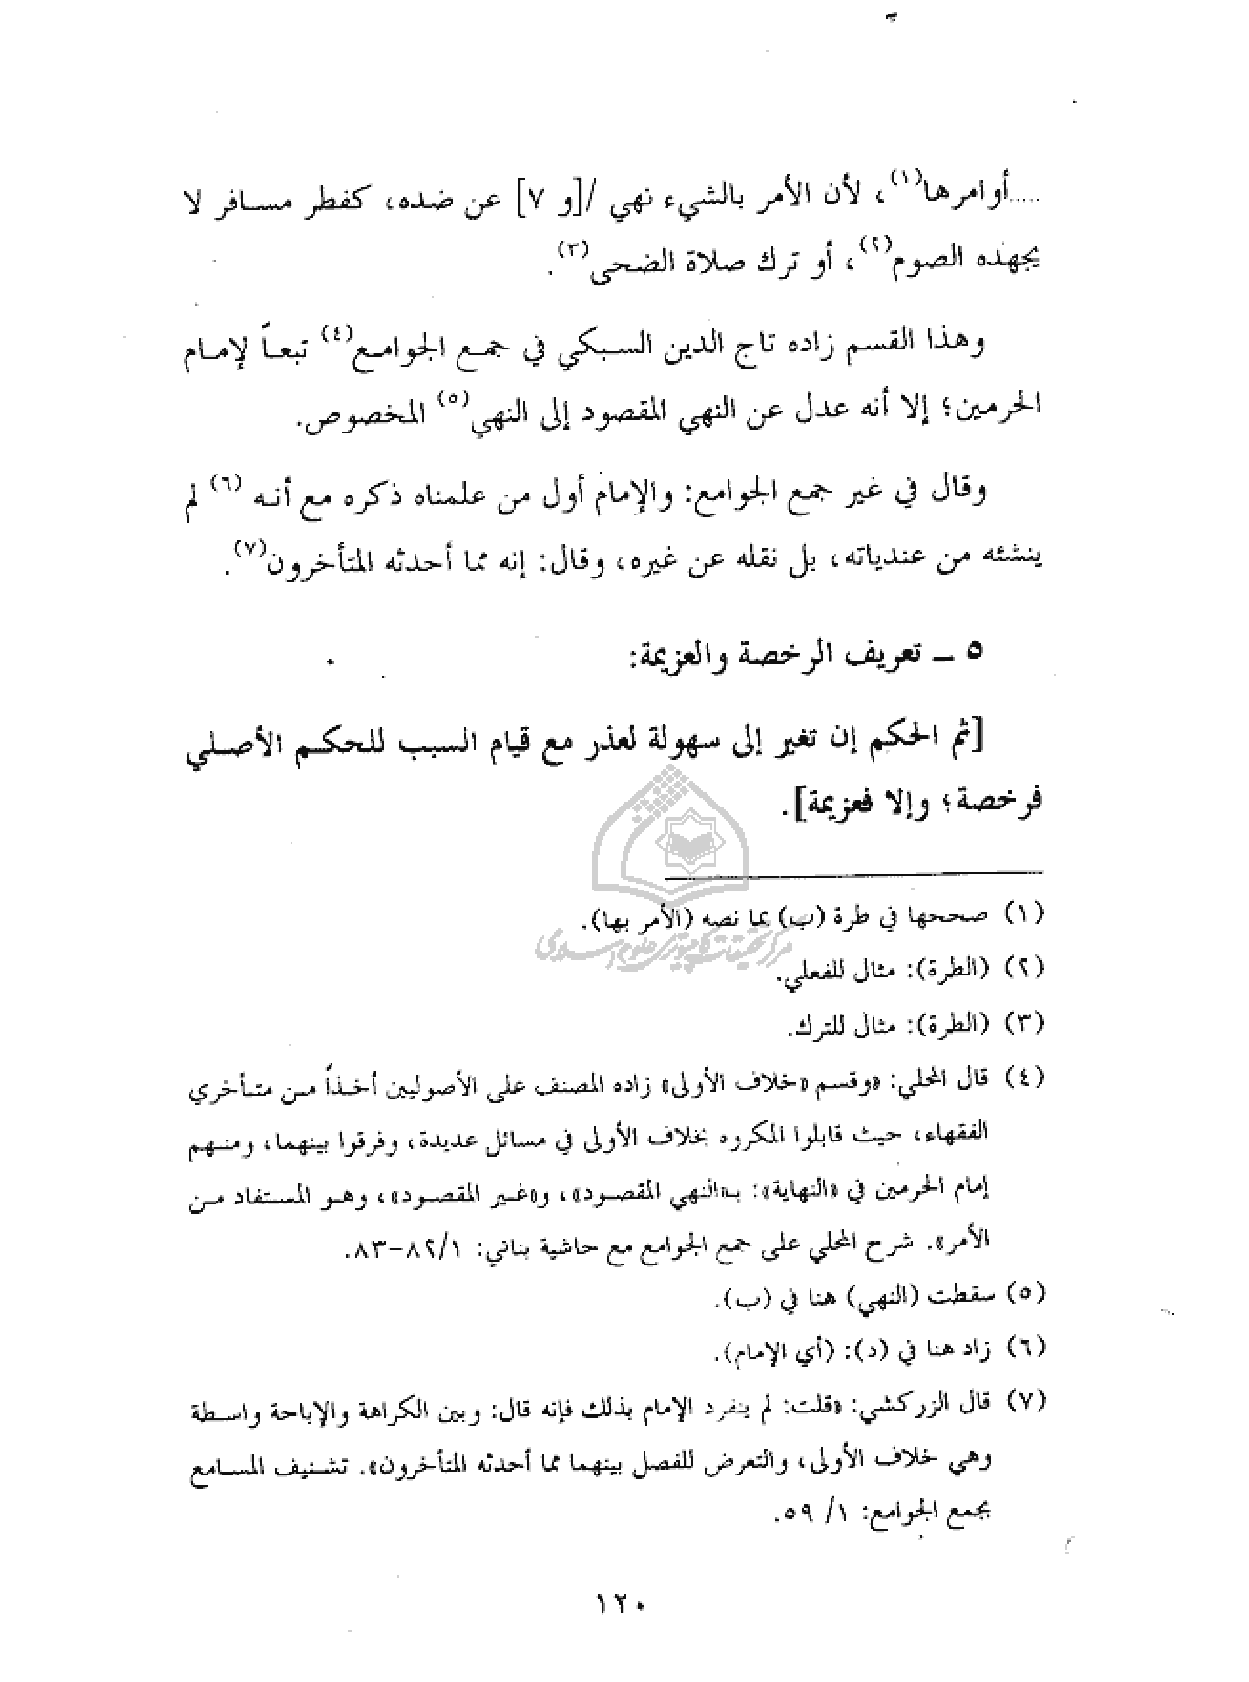 .....أوامرها(١)، لأن الأمر بالشيء نهي /[و ٧] عن ضده، كفطر مسافر لا
يجهده الصوم(٢)، أو ترك صلاة الضحى(٣).
وهذا القسم زاده تاج الدين السبكي في جمع الجوامع(٤) تبعاً لإمام
الحرمين؛ إلا أنه عدل عن النهي المقصود إلى النهي(٥) المخصوص.
وقال في غير جمع الجوامع: والإمام أول من علمناه ذكره مع أنه(٦) لم
ينشئه من عندياته، بل نقله عن غيره، وقال: إنه مما أحدثه المتأخرون(٧).
٥ – تعريف الرخصة والعزيمة:
[ثم الحكم إن تغير إلى سهولة لعذر مع قيام السبب للحكم الأصلي
فرخصة؛ وإلا فعزيمة].
(١) صححها في طرة (ب) بما نصه (الأمر بها).
مركز تحقيقات كامپيوترى علوم اسلامى
(٢) (الطرة): مثال للفعلي.
(٣) (الطرة): مثال للترك.
(٤) قال المحلي: «وقسم «خلاف الأولى» زاده المصنف على الأصوليين أخذاً من متأخري
الفقهاء، حيث قابلوا المكروه بخلاف الأولى في مسائل عديدة، وفرقوا بينهما، ومنهم
إمام الحرمين في «النهاية»: بـ«النهي المقصود»، و«غير المقصود»، وهو المستفاد من
الأمر». شرح المحلي على جمع الجوامع مع حاشية بناني: ١/٨٢-٨٣.
(٥) سقطت (النهي) هنا في (ب).
(٦) زاد هنا في (د): (أي الإمام).
(٧) قال الزركشي: «قلت: لم ينفرد الإمام بذلك فإنه قال: وبين الكراهة والإباحة واسطة
وهي خلاف الأولى، والتعرض للفصل بينهما مما أحدثه المتأخرون». تشنيف المسامع
بجمع الجوامع: ١/ ٥٩.
١٢٠